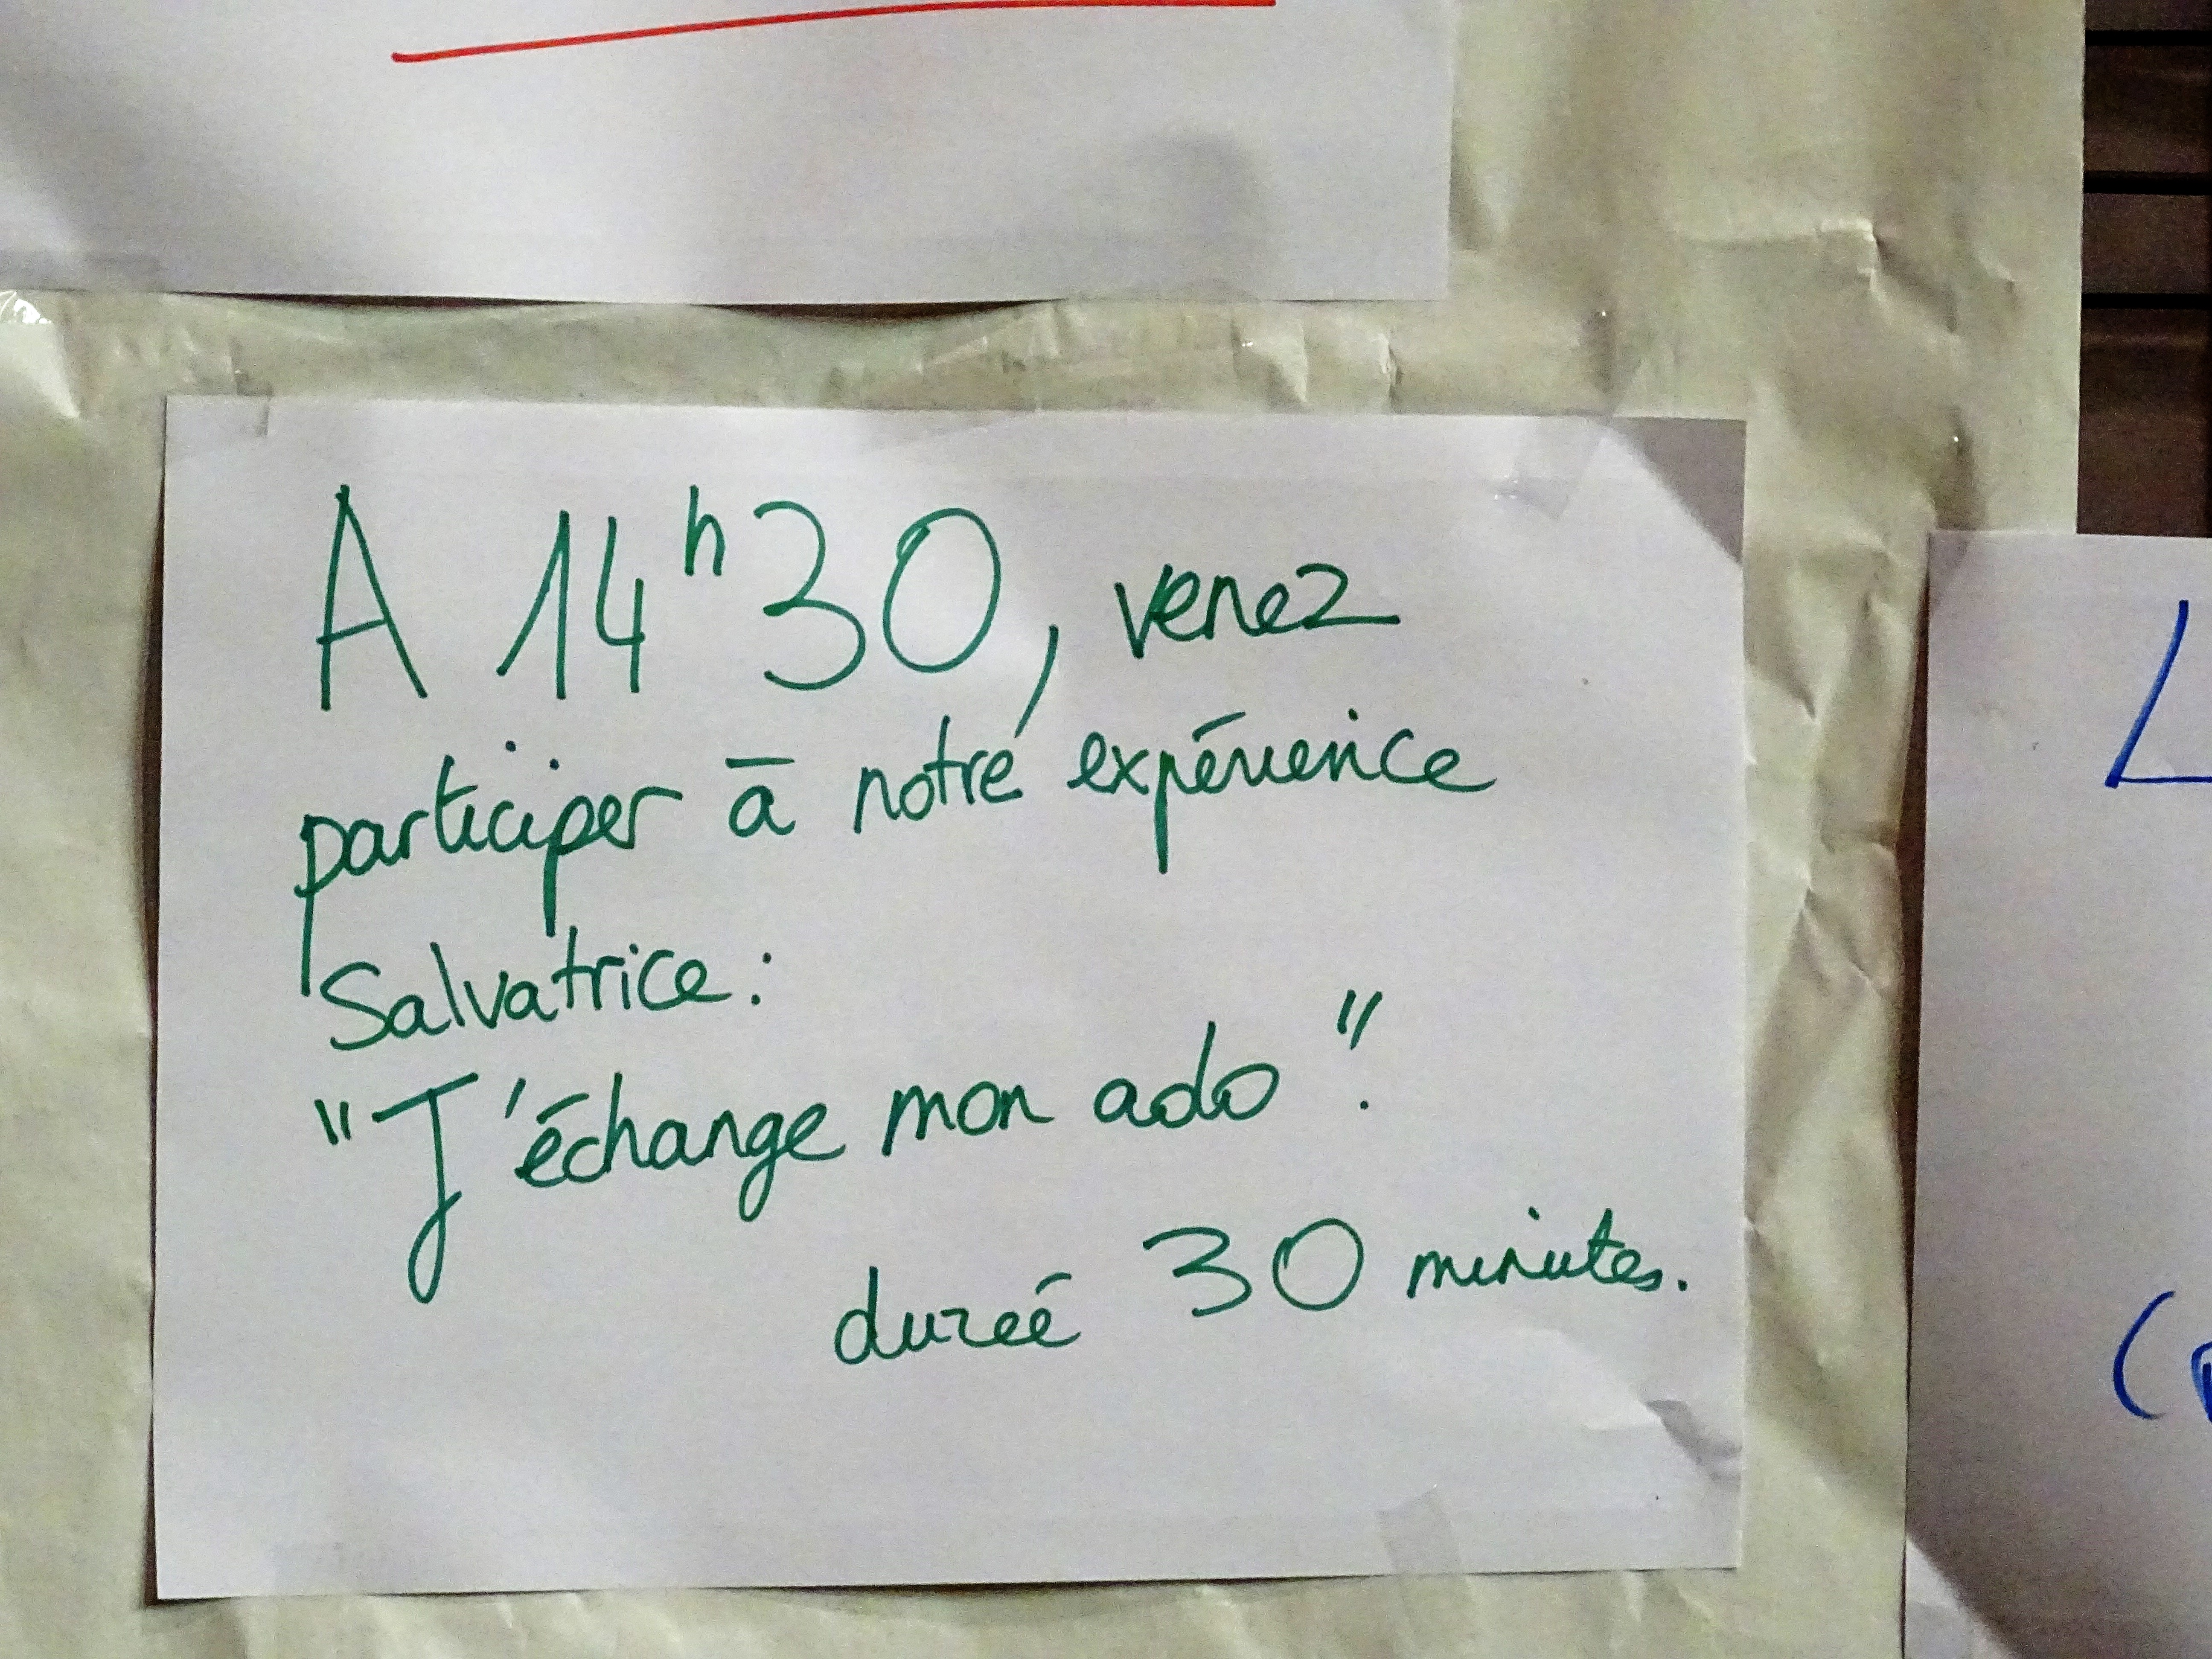 A 14h30, venez
participer à notre expérience
Salvatrice:
"J'échange mon ado".
durée 30 minutes.
L
(